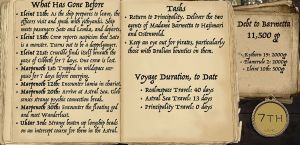 What Has Gone Before
• Eleint 11th: As the ship prepares to leave, the
officers visit and speak with polymaths. Ship
meets passengers Sato and Lomda, and departs.
• Eleint 15th: Crew reports suspicions that Sato
is a mutator. Turns out to be a doppelganger.
• Eleint 21st: Crucible finds itself under the
gaze of Caiphon. One is slain
before escaping.
• Marpenoth 1st: Trapped in wildspace
for 7 days before emerging.
• Marpenoth 12th: Encounter lamia in chest.
• Marpenoth 22nd: Arrive at Astral Sea. Clell
senses strange psychic connection break.
• Marpenoth 30th: Encounter the floating god
and meet Wanderlust.
• Uktar 3rd: Strange beacon on longship heads
on an intercept course for them in the Astral.
Tasks
• Return to Principality. Deliver the two
agents of Madame Barnetta to Hajimari
and Ostermold.
• Keep an eye out for pirates, particularly
those with Bralian bounties on them.
Voyage Duration, to Date
• Realmspace Travel: 40 days
• Astral Sea Travel: 13 days
• Principality Travel: 0 days
Debt to Barnetta
11,500 gp
• Kythorn 19: 2000gp
• Flamerule 2: 1000gp
• Eleint 10th: 500gp
7TH